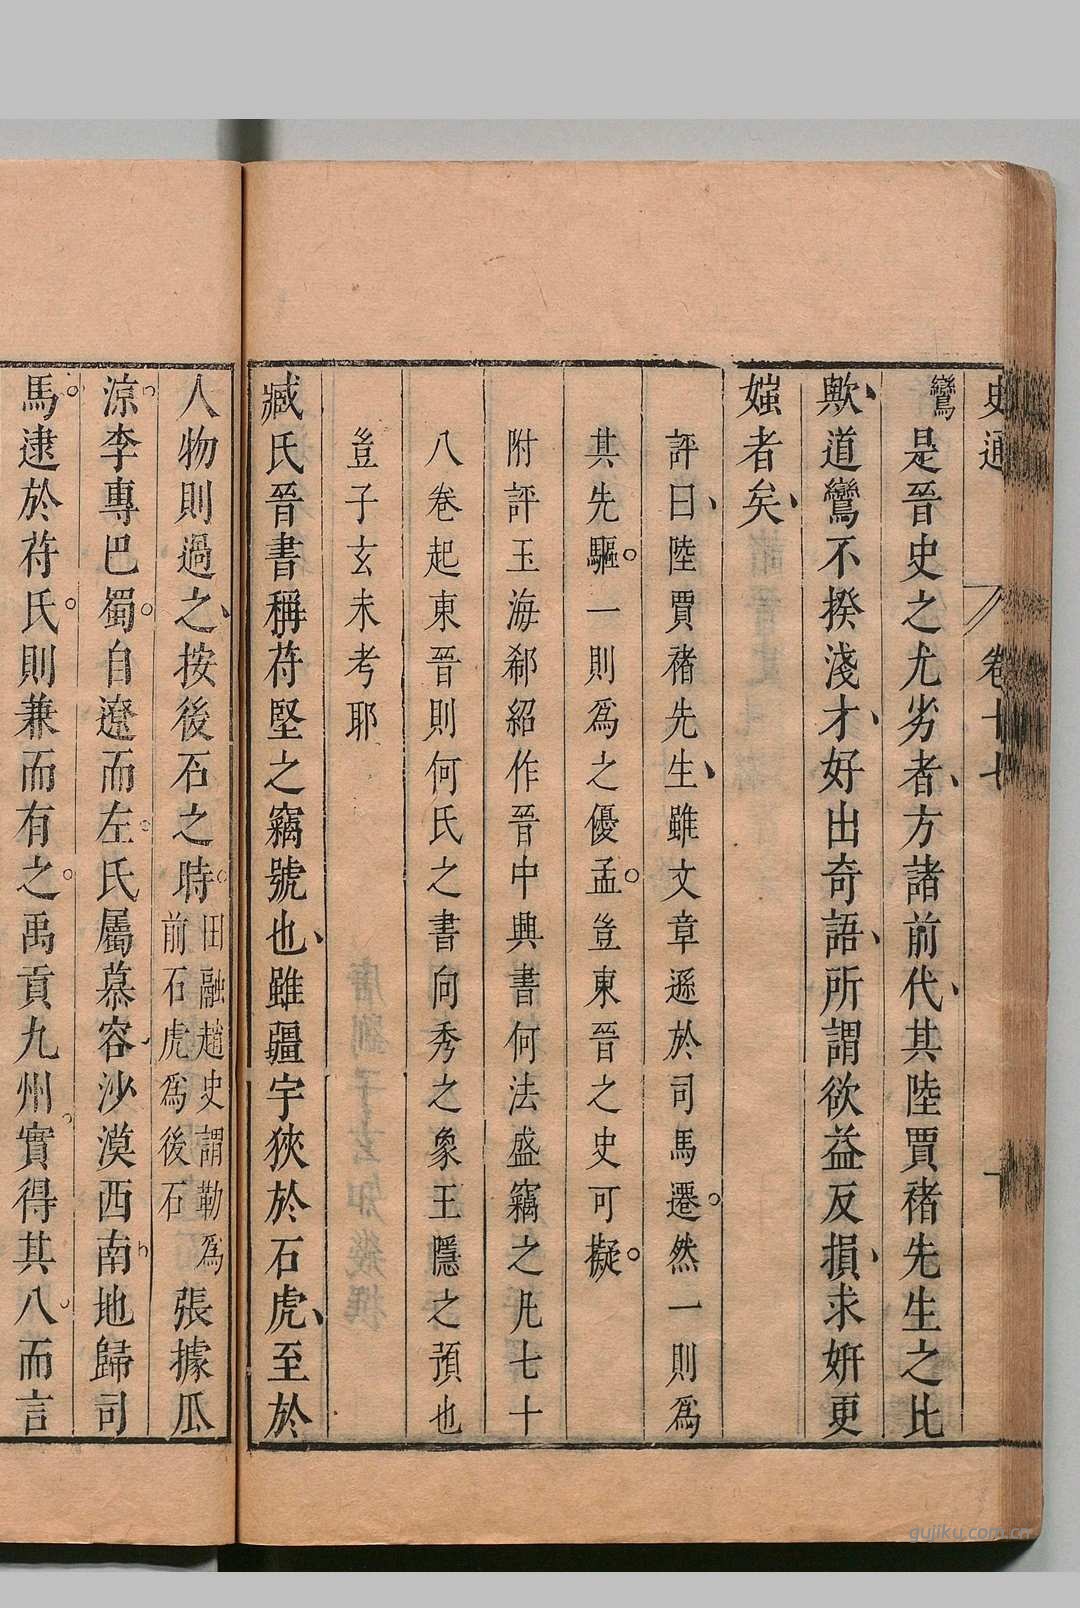 史通
卷十七
鸞是晉史之尤劣者方諸前代其陸賈禇先生之比
歟道鸞不揆淺才好出奇語所謂欲益反損求妍更
媸者矣
評曰陸賈禇先生雖文章遜於司馬遷然一則爲
其先驅一則爲之優孟豈東晉之史可擬
附評玉海郗紹作晉中興書何法盛竊之凡七十
八卷起東晉則何氏之書向秀之象王隱之預也
豈子玄未考耶
臧氏晉書稱苻堅之竊號也雖疆宇狹於石虎至於
人物則過之按後石之時田融趙史謂勒爲前石虎爲後石張據瓜
涼李專巴蜀自遼而左氏屬慕容沙漠西南地歸司
馬逮於苻氏則兼而有之禹貢九州實得其八而言
gujiku.com.cn